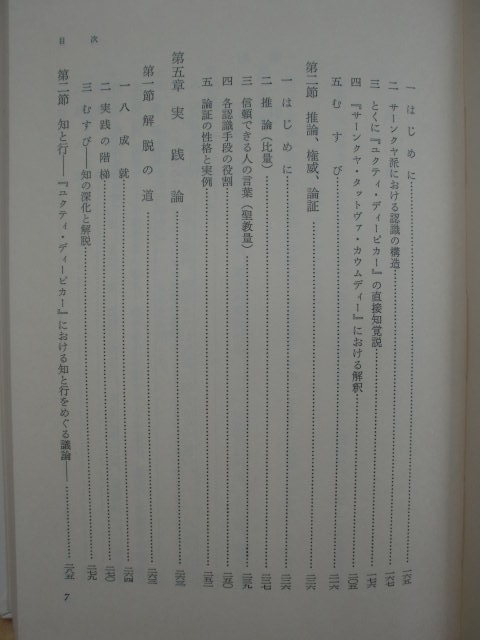 一 はじめに……一六五
二 サーンクヤ派における認識の構造……一六七
三 とくに『ユクティ・ディーピカー』の直接知覚説……一七六
四 『サーンクヤ・タットヴァ・カウムディー』における解釈……二〇五
五 むすび……二一六
第二節 推論、権威、論証……二二六
一 はじめに……二二六
二 推論（比量）……二二七
三 信頼できる人の言葉（聖教量）……二三九
四 各認識手段の役割……二五〇
五 論証の性格と実例……二五一
第五章 実践論……二六三
第一節 解脱の道……二六三
一 八成就……二六四
二 実践の階梯……二七〇
三 むすび――知の深化と解脱……二七九
第二節 知と行――『ユクティ・ディーピカー』における知と行をめぐる議論――……二八五
目次
7